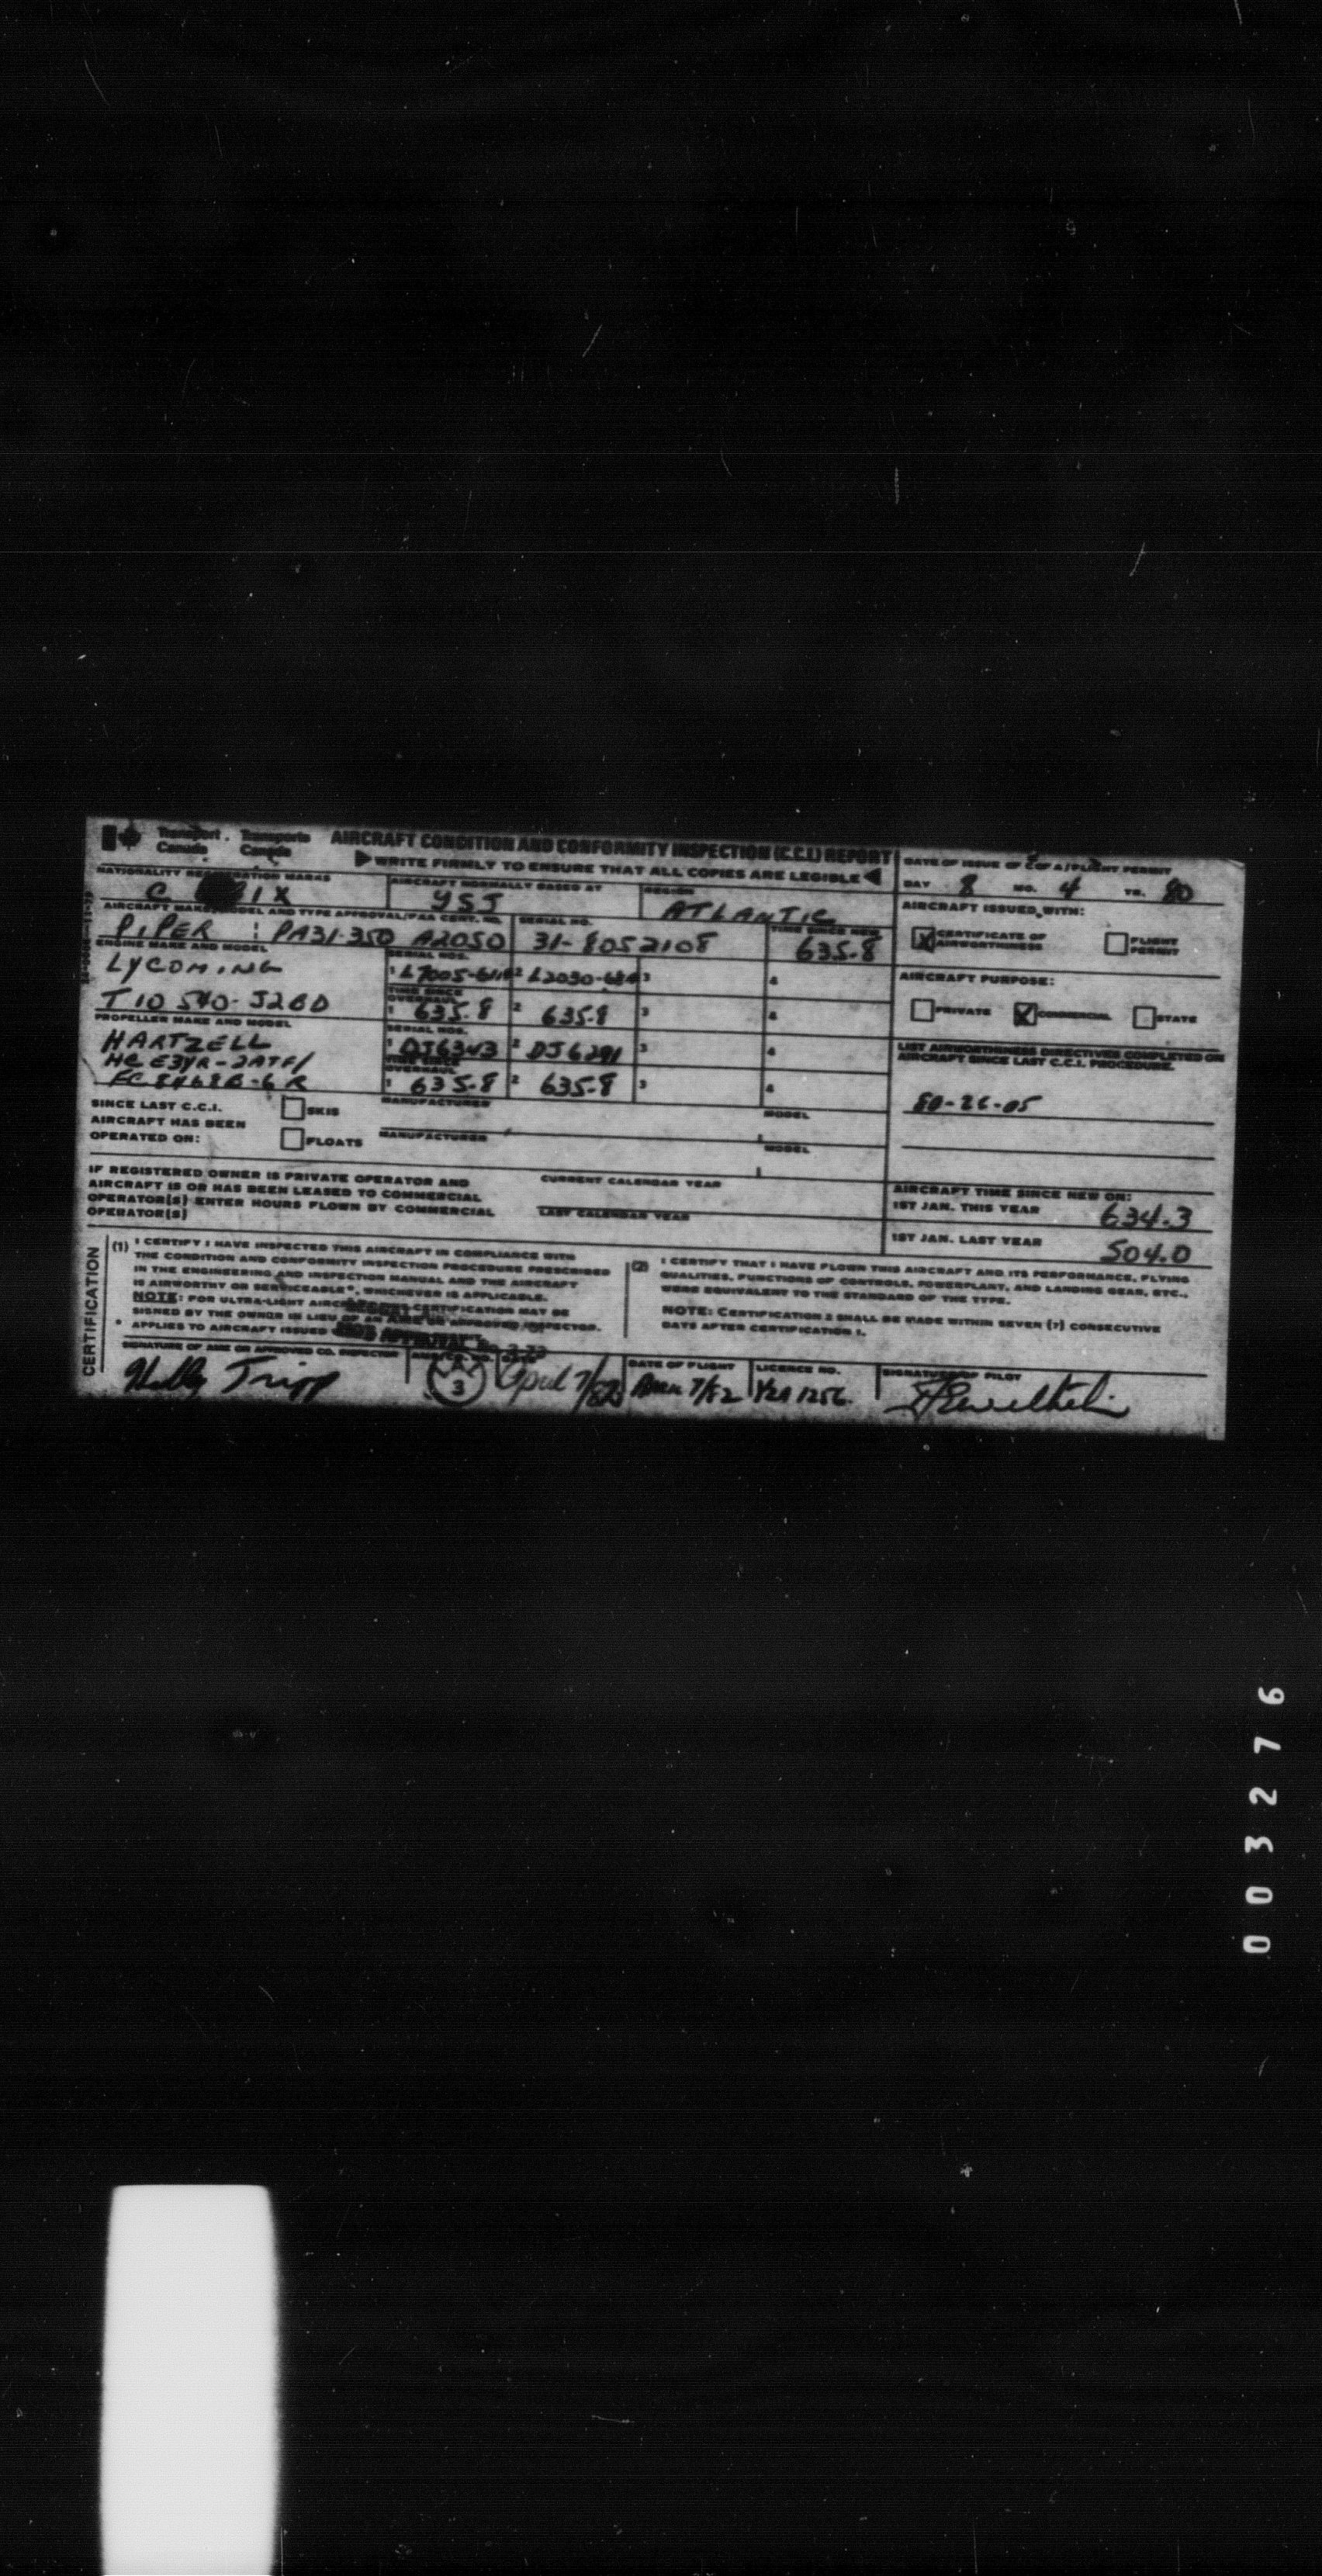 Transport Canada Transports Canada
AIRCRAFT CONDITION AND CONFORMITY INSPECTION (C.C.I.) REPORT
WRITE FIRMLY TO ENSURE THAT ALL COPIES ARE LEGIBLE
DATE OF ISSUE OF C OF A/FLIGHT PERMIT
DAY 8 MO. 4 YR. 80
NATIONALITY REGISTRATION MARKS
C IX
AIRCRAFT NORMALLY BASED AT
YSJ
REGION
ATLANTIC
AIRCRAFT MAKE, MODEL AND TYPE APPROVAL/FAA CERT. NO.
PIPER PA31-350 A20SO
SERIAL NO.
31-8052108
TIME SINCE NEW
635.8
AIRCRAFT ISSUED WITH:
X CERTIFICATE OF AIRWORTHINESS
FLIGHT PERMIT
ENGINE MAKE AND MODEL
LYCOMING
TIO 540-J2BD
SERIAL NOS.
1 2 3 4
TIME SINCE OVERHAUL
1 635.8 2 635.8 3 4
AIRCRAFT PURPOSE:
PRIVATE X COMMERCIAL STATE
PROPELLER MAKE AND MODEL
HARTZELL
HC E3YR-2ATF/
FC8468B-6R
SERIAL NOS.
1 DJ6343 2 DJ6291 3 4
TIME SINCE OVERHAUL
1 635.8 2 635.8 3 4
LIST AIRWORTHINESS DIRECTIVES COMPLETED ON
AIRCRAFT SINCE LAST C.C.I. PROCEDURE.
80-26-05
SINCE LAST C.C.I.
AIRCRAFT HAS BEEN
OPERATED ON:
SKIS
FLOATS
MANUFACTURER MODEL
MANUFACTURER MODEL
IF REGISTERED OWNER IS PRIVATE OPERATOR AND
AIRCRAFT IS OR HAS BEEN LEASED TO COMMERCIAL
OPERATOR(S) ENTER HOURS FLOWN BY COMMERCIAL
OPERATOR(S)
CURRENT CALENDAR YEAR
LAST CALENDAR YEAR
AIRCRAFT TIME SINCE NEW ON:
1ST JAN. THIS YEAR 634.3
1ST JAN. LAST YEAR 504.0
CERTIFICATION
(1) I CERTIFY I HAVE INSPECTED THIS AIRCRAFT IN COMPLIANCE WITH
THE CONDITION AND CONFORMITY INSPECTION PROCEDURE PRESCRIBED
IN THE ENGINEERING AND INSPECTION MANUAL AND THE AIRCRAFT
IS AIRWORTHY OR SERVICEABLE*, WHICHEVER IS APPLICABLE.
NOTE: FOR ULTRA-LIGHT AIRCRAFT CERTIFICATION MAY BE
SIGNED BY THE OWNER IN LIEU OF AN AME OR APPROVED INSPECTOR.
* APPLIES TO AIRCRAFT ISSUED
(2) I CERTIFY THAT I HAVE FLOWN THIS AIRCRAFT AND ITS PERFORMANCE, FLYING
QUALITIES, FUNCTIONS OF CONTROLS, POWERPLANT, AND LANDING GEAR, ETC.,
WERE EQUIVALENT TO THE STANDARD OF THE TYPE.
NOTE: CERTIFICATION 2 SHALL BE MADE WITHIN SEVEN (7) CONSECUTIVE
DAYS AFTER CERTIFICATION 1.
SIGNATURE OF AME OR APPROVED CO. INSPECTOR
Tripp
3
April 7/82
DATE OF FLIGHT
April 7/82
LICENCE NO.
YZA 1256
SIGNATURE OF PILOT
003276